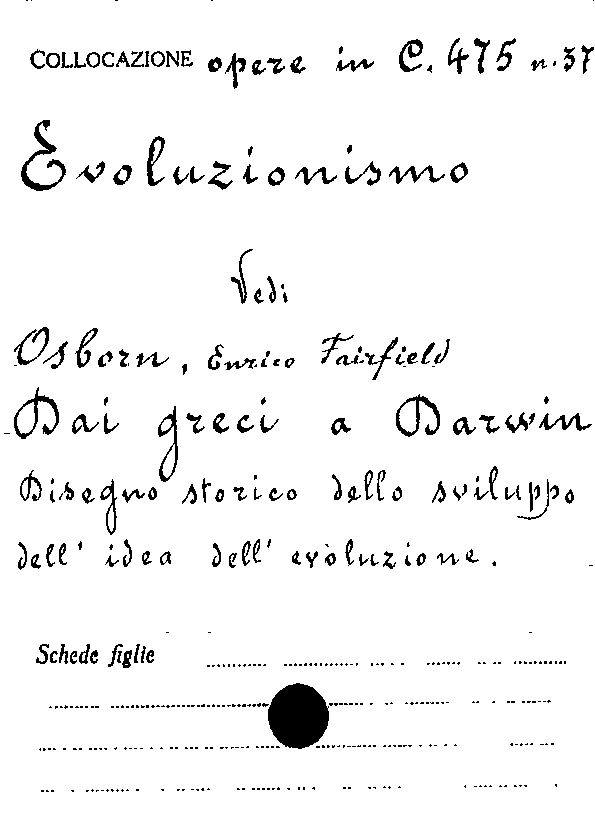 COLLOCAZIONE opere in C. 475 n. 37
Evoluzionismo
Vedi
Osborn, Enrico Fairfield
Dai greci a Darwin
Disegno storico dello sviluppo
dell' idea dell' evoluzione.
Schede figlie